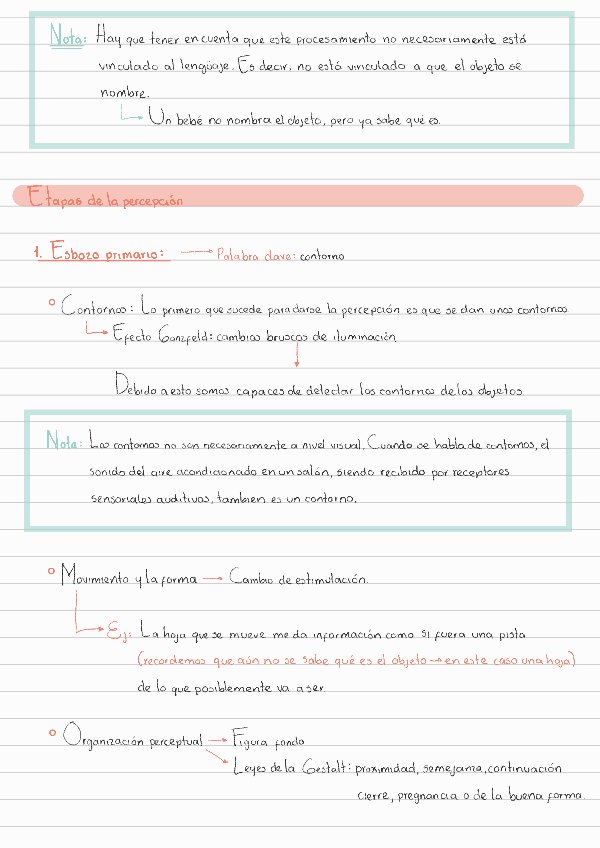 Nota: Hay que tener en cuenta que este procesamiento no necesariamente está
vinculado al lenguaje. Es decir, no está vinculado a que el objeto se
nombre.
Un bebé no nombra el objeto, pero ya sabe qué es.
Etapas de la percepción
1. Esbozo primario: → Palabra clave: contorno
Contornos: Lo primero que sucede para darse la percepción es que se dan unos contornos.
Efecto Ganzfeld: cambios bruscos de iluminación
Debido a esto somos capaces de detectar los contornos de los objetos.
Nota: Los contornos no son necesariamente a nivel visual. Cuando se habla de contornos, el
sonido del aire acondicionado en un salón, siendo recibido por receptores
sensoriales auditivos, tambien es un contorno.
Movimiento y la forma → Cambio de estimulación.
Ej: La hoja que se mueve me da información como si fuera una pista
(recordemos que aún no se sabe qué es el objeto → en este caso una hoja)
de lo que posiblemente va a ser.
Organización perceptual → Figura fondo
Leyes de la Gestalt: proximidad, semejanza, continuación
cierre, pregnancia o de la buena forma.